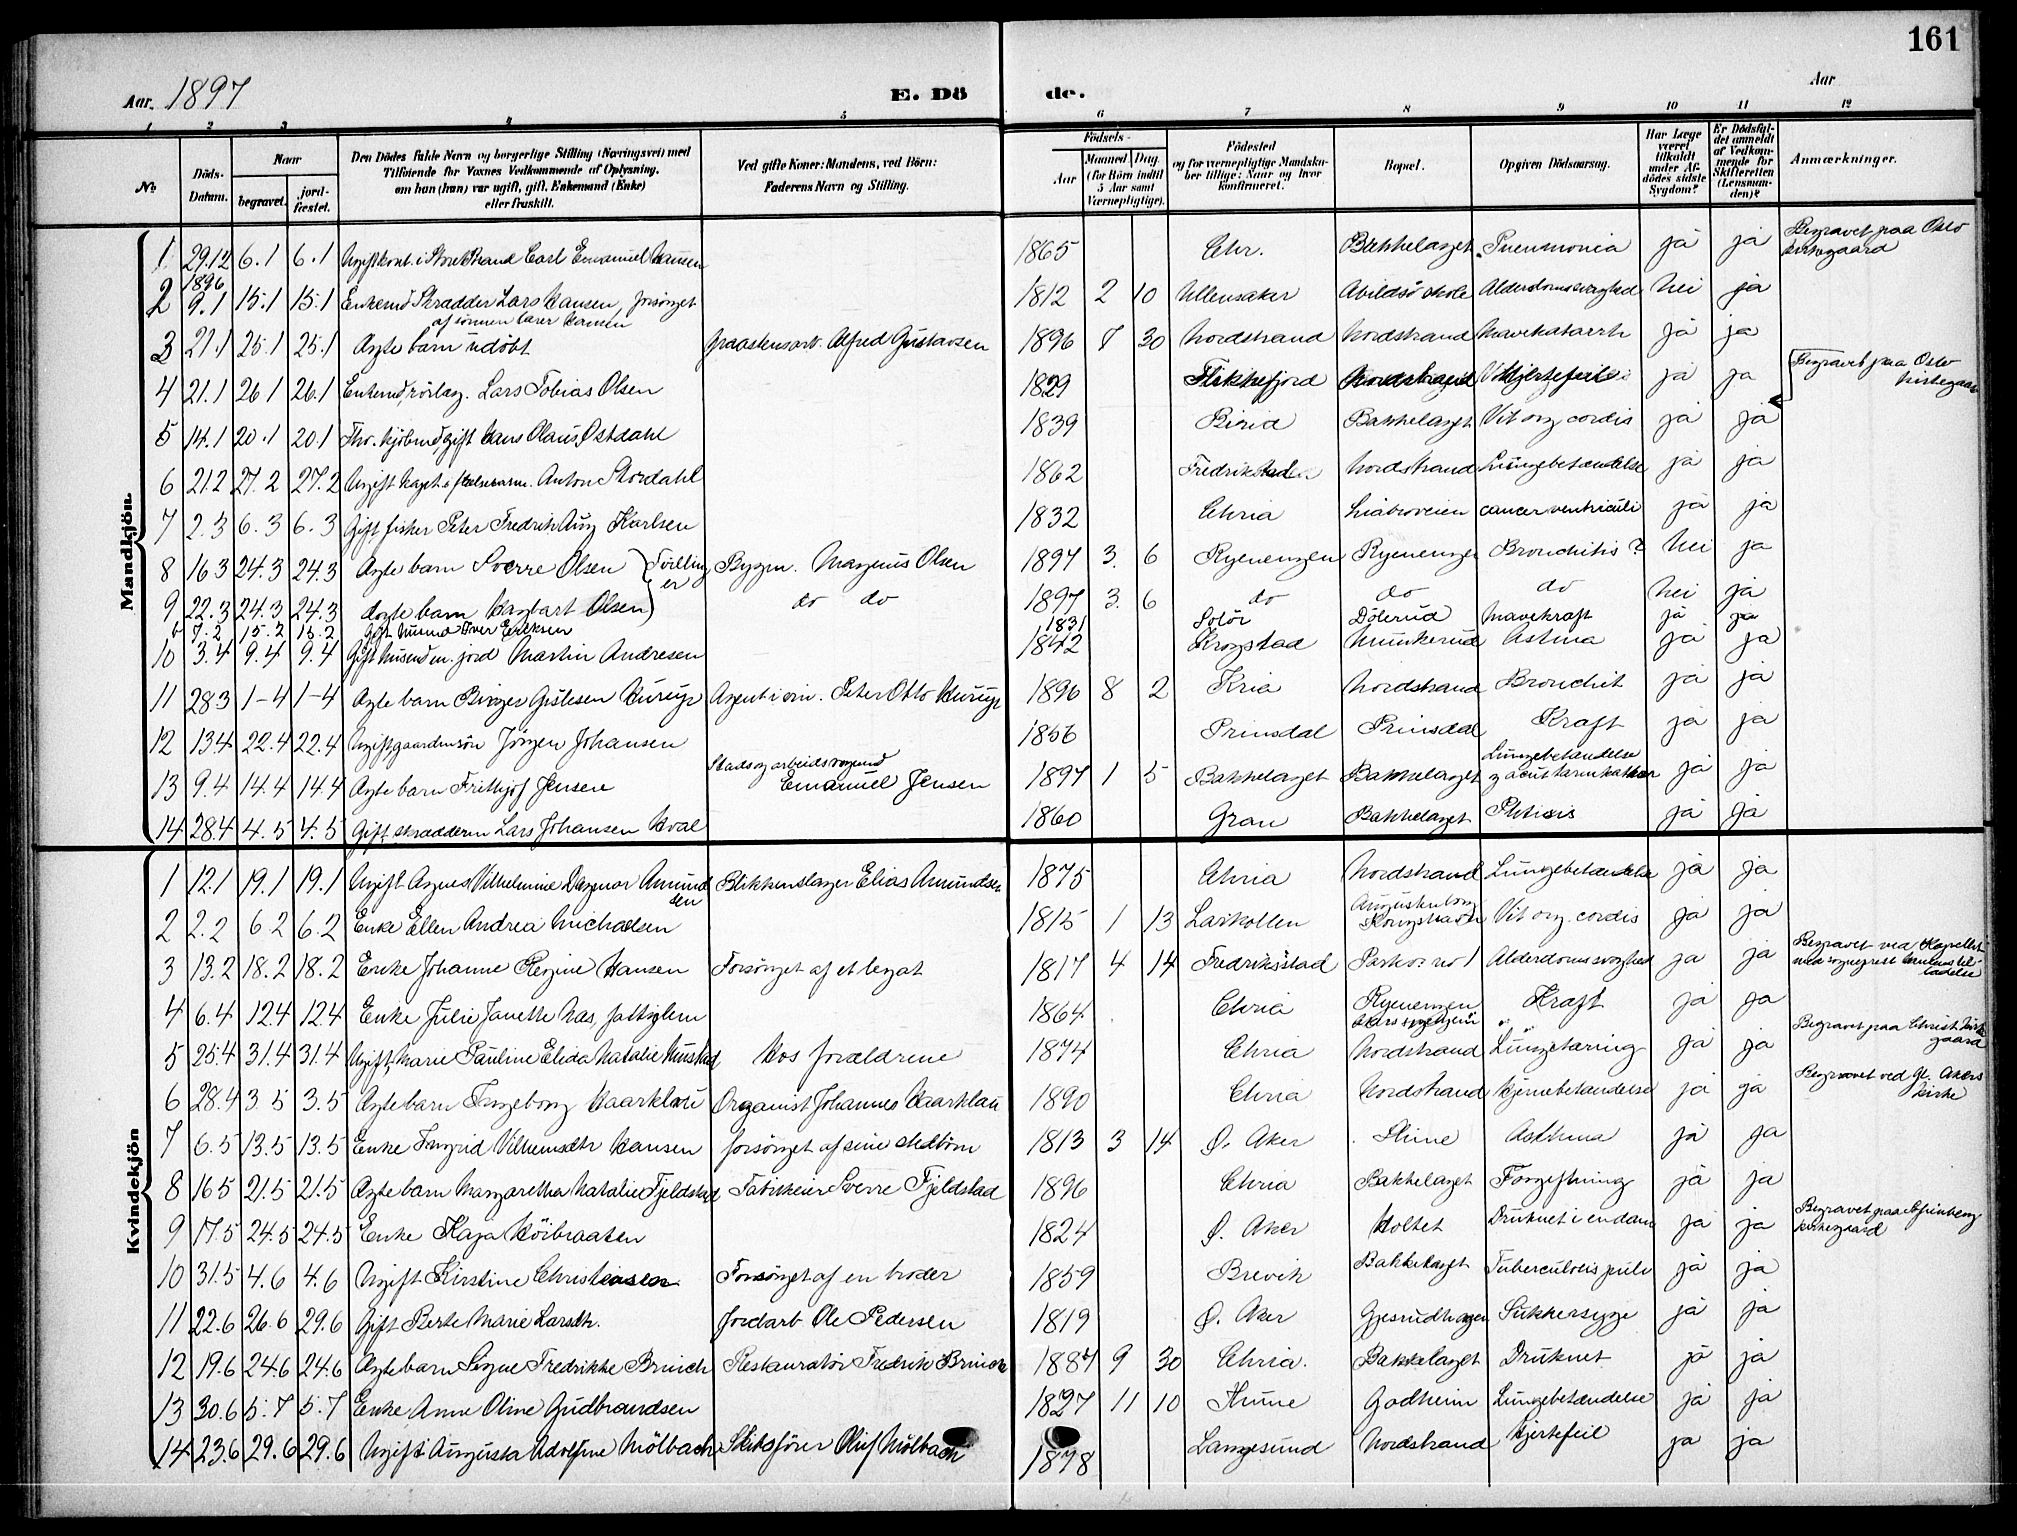 161
Aar. 1897 E. Dö de. Aar
1 2 3 4 5 6 7 8 9 10 11 12
No. Döds-Datum. Naar begravet. jord-fæstet. Den Dödes fulde Navn og borgerlige Stilling (Næringsvei) med Tilföiende for Voxnes Vedkommende af Oplysning, om han (hun) var ugift, gift, Enkemand (Enke) eller fraskilt. Ved gifte Koner: Mandens, ved Börn: Faderens Navn og Stilling. Födsels- Aar Maaned Dag. (for Börn indtil 5 Aar samt Værnepligtige). Födested og for værnepligtige Mandskaber tillige: Naar og hvor konfirmeret. Bopæl. Opgiven Dödsaarsag. Har Læge været tilkaldt under Afdödes sidste Sygdom? Er Dödsfaldet anmeldt af Vedkommende for Skifteretten (Lensmanden)? Anmærkninger.
Mandkjön
1 29.12 1896 6.1 6.1 Ugift kont. i Carl Emanuel Hansen 1865 Chr. Bækkelaget Pneumonia ja ja Begravet paa Oslo kirkegaard
2 9.1 15.1 15.1 Enkemd Skrædder Lars Hansen, forsörget af sönnen lærer Hansen 1812 2 10 Ullensaker Abildsö skole Alderdomssvaghed Nei ja
3 21.1 25.1 25.1 Ægte barn udöbt Graastensarb. Alfred Gustavsen 1896 7 30 Nordstrand Nordstrand Mavekatarrh ja ja
4 21.1 26.1 26.1 Enkemd, rörlæg. Lars Tobias Olsen 1829 Flekkefjord Nordstrand Hjertefeil ja ja Begravet paa Oslo kirkegaard
5 14.1 20.1 20.1 Fhv. kjöbmd, gift Hans Olaus Østdahl 1839 Birid Bækkelaget Vit org cordis ja ja
6 21.2 27.2 27.2 Ugift kapt. i frelsesarm. Anton Stordahl 1862 Fredrikshald Nordstrand Lungebetændelse ja ja
7 2.3 6.3 6.3 Gift fisker Peter Fredrik Aug Karlsen 1832 Chria Liabroveien cancer ventriculi ja ja
8 16.3 24.3 24.3 Ægte barn Sverre Olsen } Tvillinger Bygm. Magnus Olsen 1897 3. 6 Ryenengen Ryenenger Bronchitis? Nei ja
9 22.3 24.3 24.3 ægte barn Hagbart Olsen } do do 1897 3. 6 do do do Nei ja
b 7.2 15.2 15.2 Gift husmd Iver Eriksen 1831 Solör Dölerud Mavekræft ja ja
10 3.4 9.4 9.4 Gift Husmd m. jord Martin Andresen 1842 Krogstad Munkerud Astma ja ja
11 28.3 1-4 1-4 Ægte barn Birger Gislesen Kurup Agent i vin. Peter Otto Kurup 1896 8 2 Kria Nordstrand Bronchit ja ja
12 13.4 22.4 22.4 Ugift, gaardmsön Jörgen Johansen 1856 Prinsdal Prinsdal Kræft ja ja
13 9.4 14.4 14.4 Ægte barn Frithjof Jensen Stads og arbeidsvognmd Emanuel Jensen 1897 1 5 Bækkelaget Bækkelaget Lungebetændelse og acut tarmkatarr ja ja
14 28.4 4.5 4.5 Gift skræddern Lars Johansen Hval 1860 Gran Bækkelaget Phtisis ja ja
Kvindekjön
1 12.1 19.1 19.1 Ugift Agnes Vilhelmine Dagmar Amundsen Blikkenslager Elias Amundsen 1875 Chria Nordstrand Lungebetændelse ja ja
2 2.2 6.2 6.2 Enke Ellen Andrea Michaelsen 1815 1 13 Larkollen Augustenborg Kongshavn Vit org. cordis ja ja
3 13.2 18.2 18.2 Enke Johanne Regine Hansen Forsörget af et legat 1817 4 14 Fredriksstad Parkv. no 1 Alderdomssvaghed ja ja Begravet ved Kapellet med sogneprest tilladelse
4 6.4 12.4 12.4 Enke Julie Janette Næs, fattiglem 1864 Chria Ryenengen Akers sygehjem Kræft ja ja
5 25.4 31.4 31.4 Ugift, Marie Pauline Elida Natalie Mustad Hos forældrene 1874 Chria Nordstrand Lungetæring ja ja Begravet paa Christ kirkegaard
6 28.4 3.5 3.5 Ægte barn Ingeborg Haarklau Organist Johannes Haarklau 1890 Chria Nordstrand Hjernebetændelse ja ja Begravet ved Gl. Akers kirke
7 6.5 13.5 13.5 Enke Ingrid Vilhemsdtr Hansen forsörget af sine stedbörn 1813 3 14 Ø. Aker Stline Asthma ja ja
8 16.5 21.5 21.5 Ægte barn Margaretha Natalie Fjeldstad Fabrikeier Sverre Fjeldstad 1896 Chria Bækkelaget Forgiftning ja ja
9 17.5 24.5 24.5 Enke Kaja Höibraaten 1824 Ø. Aker Holtet Druknet i en dam ja ja Begravet paa Grünberg kirkegaard
10 31.5 4.6 4.6 Ugift Kirstine Christensen Forsörget af en broder 1859 Brevik Bækkelaget Tuberculosis pulm ja ja
11 22.6 26.6 29.6 Gift Berte Marie Larsdtr. Jordarb Ole Pedersen 1819 Ø. Aker Gjersrudhagen Sukkersyge ja ja
12 19.6 24.6 24.6 Ægte barn Signe Fredrikke Brinch Restauratör Fredrik Brinch 1887 9 30 Chria. Bækkelaget Druknet ja ja
13 30.6 5.7 5.7 Enke Anne Oline Gudbrandsen 1827 11 10 Hurum Godheim Lungebetændelse ja ja
14 23.6 29.6 29.6 Ugift Augusta Adolfine Mölbach Skibsförer Oluf Mölbach 1878 Langesund Nordstrand Hjertefeil ja ja